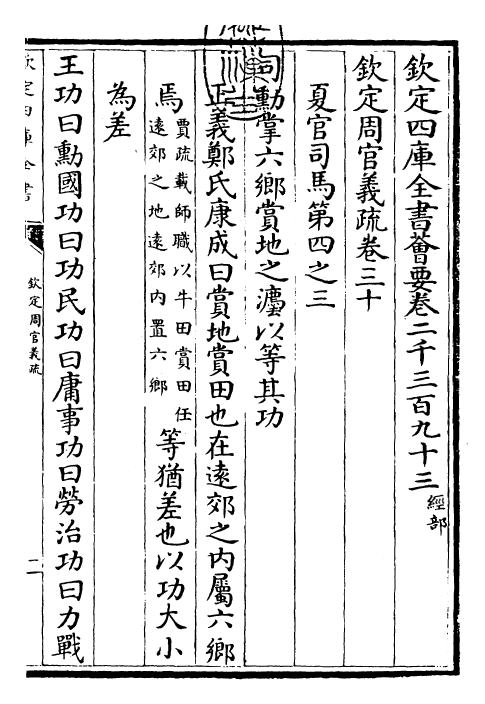 欽定四庫全書薈要卷二千三百九十三 經部
欽定周官義疏卷三十
夏官司馬第四之三
司勳掌六鄉賞地之灋以等其功
正義鄭氏康成曰賞地賞田也在逺郊之内屬六鄉
焉 賈疏載師職以牛田賞田任
逺郊之地逺郊内置六鄉 等猶差也以功大小
為差
王功曰勳國功曰功民功曰庸事功曰勞治功曰力戰
欽定四庫全書
欽定周官義疏